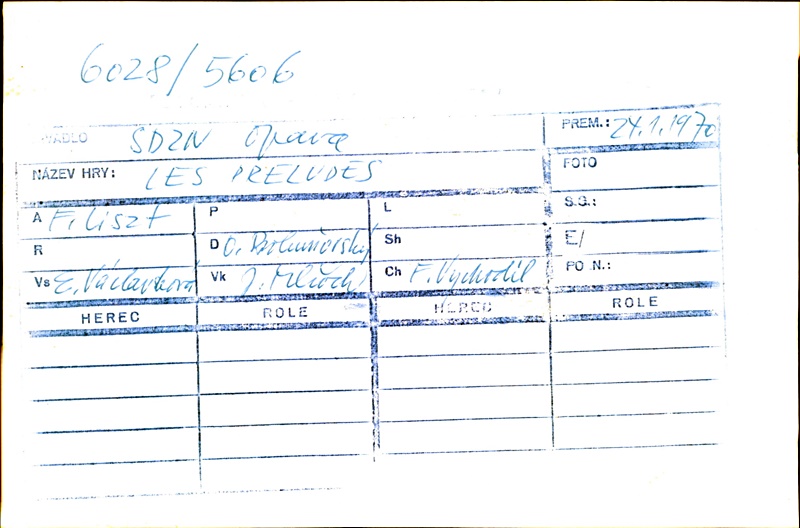 6028/5606
DIVADLO SDZN Opava PREM.: 24.1.1970
NÁZEV HRY: LES PRELUDES FOTO
A F. Liszt P L S.G.:
R D O. Bohuňovský Sh E/
Vs E. Václavková Vk J. Ch F. Vychodil PO N.:
HEREC ROLE HEREC ROLE